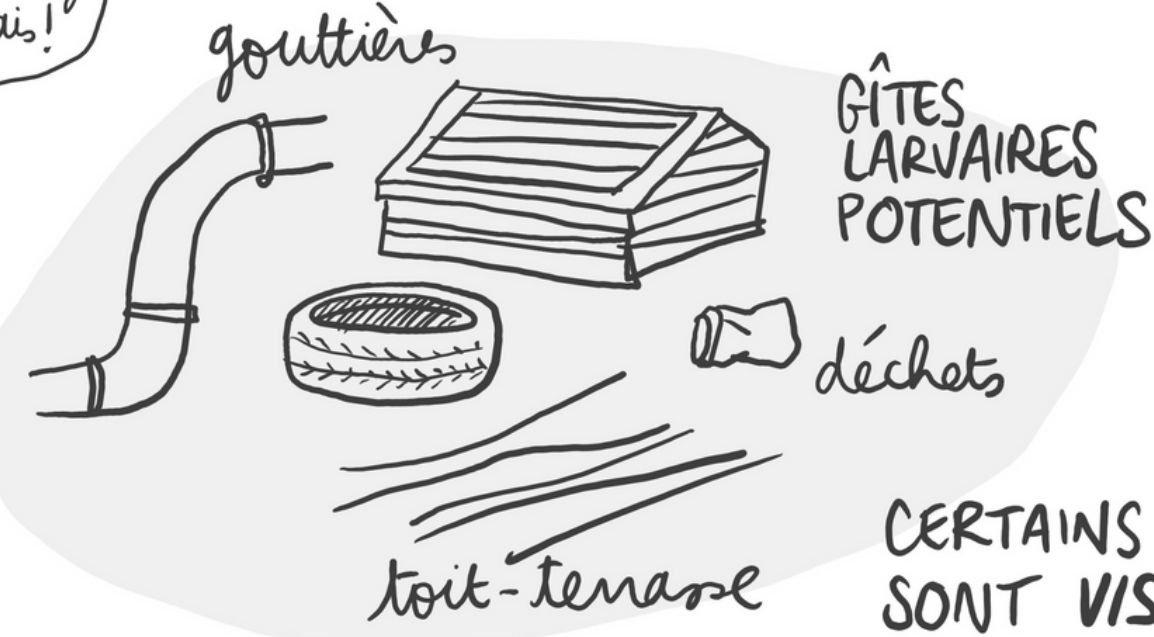 gouttières
GÎTES
LARVAIRES
POTENTIELS
déchets
toit-terrasse
CERTAINS
SONT